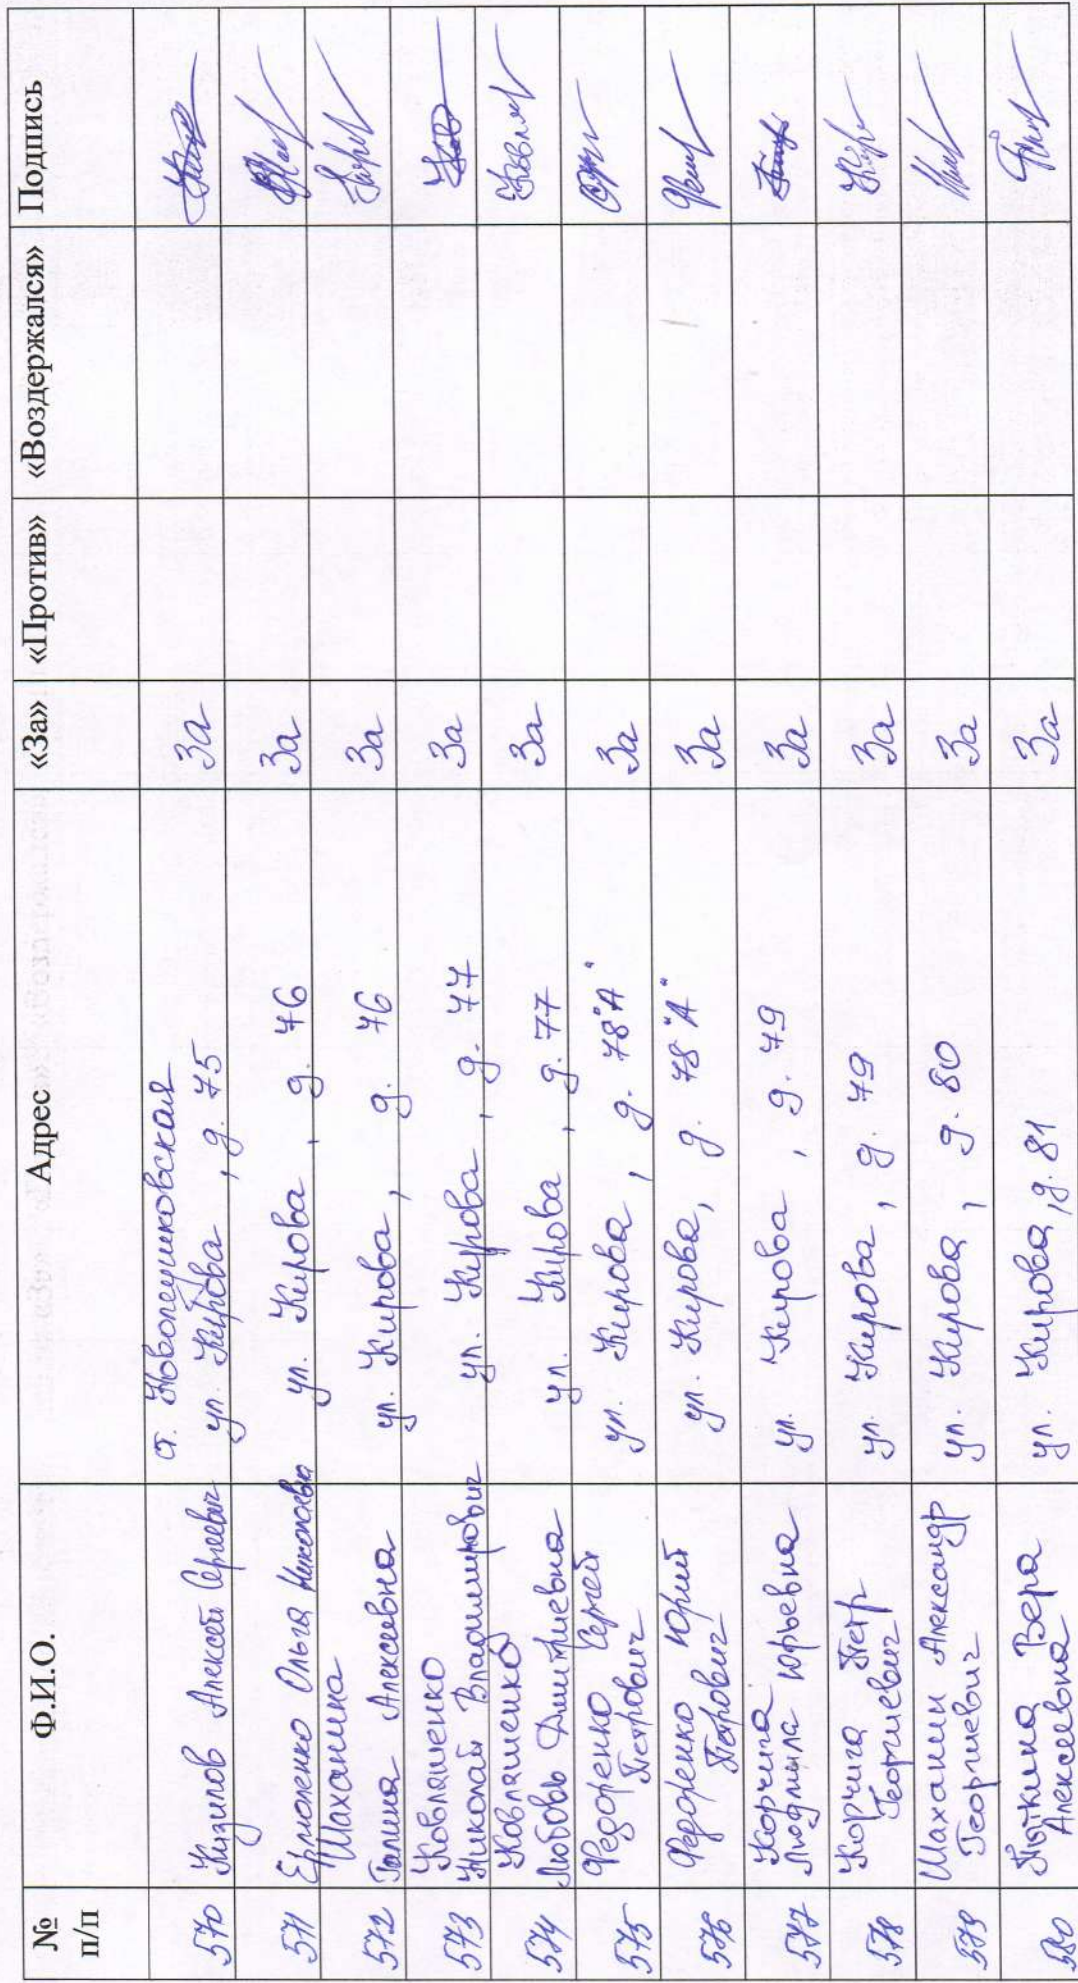 № п/п Ф.И.О. Адрес «За» «Против» «Воздержался» Подпись
570 Кизилов Алексей Сергеевич ст. Новолеушковская
ул. Кирова, д. 75 За
571 Ермоленко Ольга Николаевна ул. Кирова, д. 76 За
572 Шаханина
Галина Алексеевна ул. Кирова, д. 76 За
573 Ковляшенко
Николай Владимирович ул. Кирова, д. 77 За
574 Ковляшенко
Любовь Дмитриевна ул. Кирова, д. 77 За
575 Федоренко Сергей
Петрович ул. Кирова, д. 78"А" За
576 Федоренко Юрий
Петрович ул. Кирова, д. 78"А" За
577 Корчига
Людмила Юрьевна ул. Кирова, д. 79 За
578 Корчига Петр
Георгиевич ул. Кирова, д. 79 За
579 Шаханин Александр
Георгиевич ул. Кирова, д. 80 За
580 Вера
Алексеевна ул. Кирова, д. 81 За